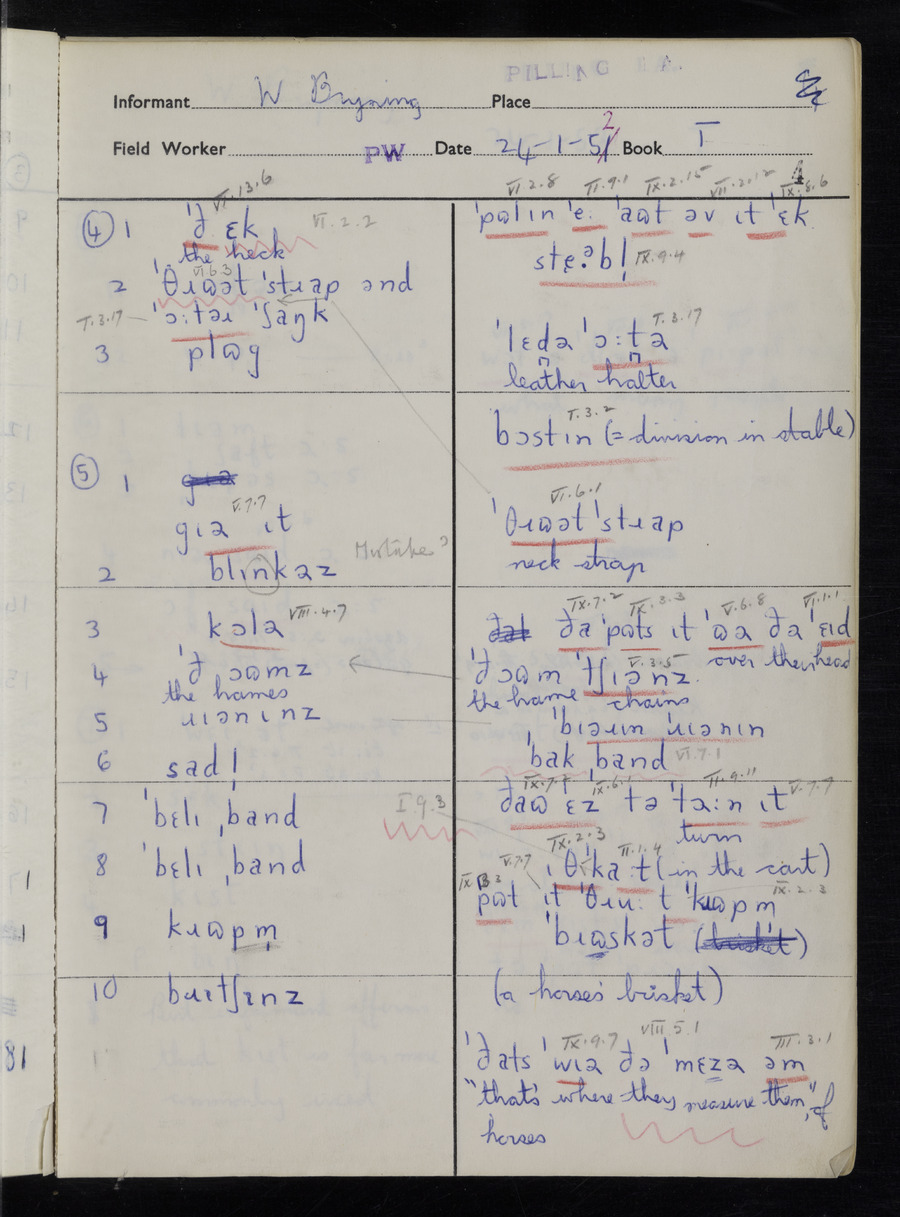 PILLING
Informant W Bryning Place
Field Worker PW Date 24-1-52 Book I
VII.13.6
VI.2.8 II.9.1 IX.2.15 VII.2.12 IX.8.6
④ 1 ˈð ɛk VI.2.2
the neck
ˈpɷlɪn ˈe. ˈaɷt əv ɩt ˈɛk
VI.6.3
2 ˈθɹɷət ˈstɹap ənd
stɛ.ᵊbḷ IX.9.4
T.3.17 ˈɔ:təɹ ˈʃaŋk
3 plɷg
ˈlɛdə ˈɔ:tə T.3.17
leather halter
bɔstɪn (= division in stable) T.3.2
⑤ 1
gɪə ɩt V.7.7
VI.6.1
ˈθɹɷət ˈstɹap
neck strap
2 blɪnkəz Mistake?
3 kɔlə VIII.4.7
IX.7.2 IX.3.3 V.6.8 VI.1.1
ðə ˈpɷts ɩt ˈɷə ðə ˈɛɪd
over their head
4 ˈð ɔɷmz
the hames
ˈð ɔɷm ˈtʃɪənz V.3.5
the hame chains
5 ɹɪənɪnz
ˈbɪəɹɪn ˈɹɪənɪn
6 sadḷ
ˈbak ˌband VI.7.1
7 ˈbɛlɩ ˌband I.9.3
IX.7.7 IX.6.1 II.9.11
ðaɷ ɛz tə ˈtə:n ɩt V.7.7
turn
8 ˈbɛlɩ ˌband
V.7.7 IX.2.3 II.1.4
ɩ θ ka:t (in the cart)
9 kɹɷpm̩
pɷt ɩt ˈθɹu: t ˈkɹɷpm IX.2.3
ˈbɹɷskət (brisket)
10 bɹɪtʃɪnz
(a horses' brisket)
IX.9.7 VIII.5.1 III.3.1
ˈðats ˈwɪə ðə ˈmɛzə əm
"that's where they measure them", of
horses